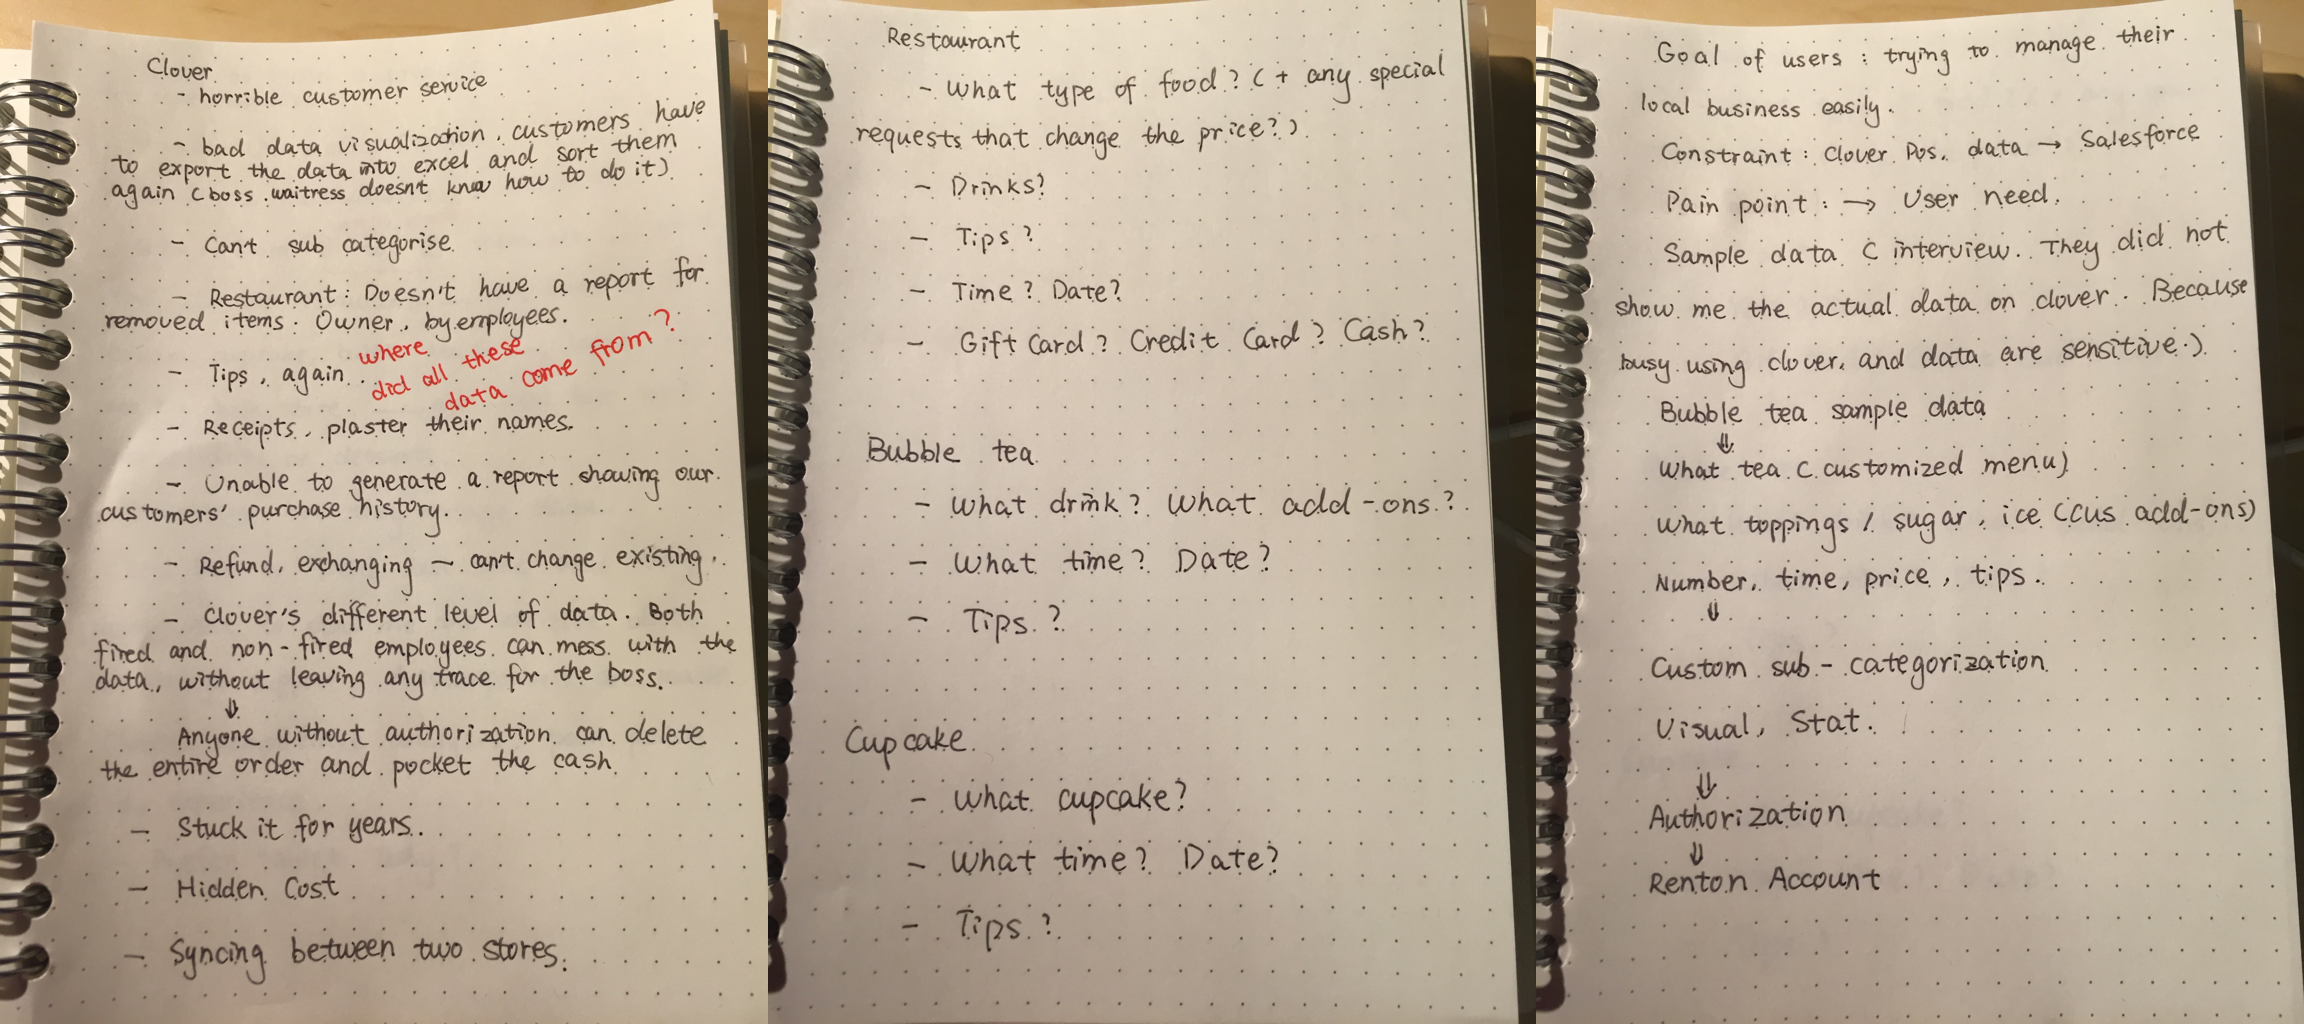 Clover
- horrible customer service
- bad data visualization. customers have
to export the data into excel and sort them
again (boss waitress doesn't know how to do it)
- Can't sub categorise
- Restaurant: Doesn't have a report for
removed items. Owner, by employees.
- Tips, again.
where
did all these
data come from?
- Receipts, plaster their names.
- Unable to generate a report showing our
customers' purchase history.
- Refund, exchanging - can't change existing.
- Clover's different level of data. Both
fired and non-fired employees can mess with the
data, without leaving any trace for the boss.
⇓
Anyone without authorization can delete
the entire order and pocket the cash
- Stuck it for years.
- Hidden Cost
- Syncing between two stores.
Restaurant
- What type of food? (+ any special
requests that change the price?)
- Drinks?
- Tips?
- Time? Date?
- Gift Card? Credit Card? Cash?
Bubble tea
- What drink? What add-ons?
- What time? Date?
- Tips?
Cupcake
- What cupcake?
- What time? Date?
- Tips?
Goal of users: trying to manage their
local business easily.
Constraint: Clover Pos. data → Salesforce
Pain point: → User need.
Sample data ( interview. They did not
show me the actual data on clover. Because
busy using clover, and data are sensitive.)
Bubble tea sample data
⇓
What tea (customized menu)
What toppings / sugar, ice (cus add-ons)
Number, time, price, tips.
⇓
Custom sub-categorization
Visual, Stat.
⇓
Authorization
⇓
Renton Account